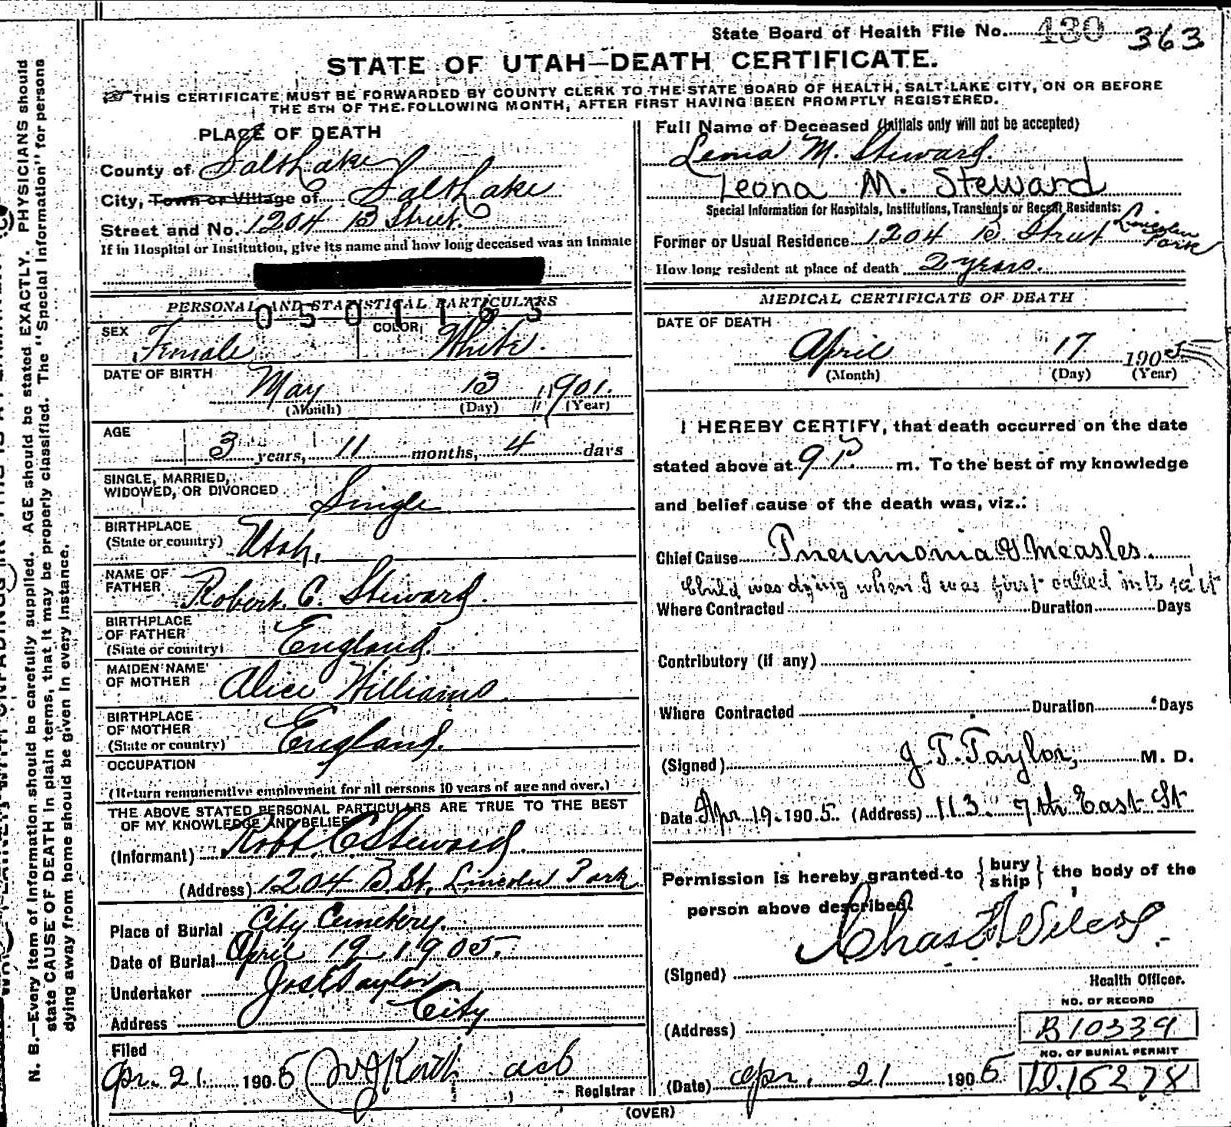 State Board of Health File No. 430 363
STATE OF UTAH—DEATH CERTIFICATE.
THIS CERTIFICATE MUST BE FORWARDED BY COUNTY CLERK TO THE STATE BOARD OF HEALTH, SALT LAKE CITY, ON OR BEFORE
THE 5TH OF THE FOLLOWING MONTH, AFTER FIRST HAVING BEEN PROMPTLY REGISTERED.
PLACE OF DEATH
County of Salt Lake
City, Town or Village of Salt Lake
Street and No. 1204 B Street.
If in Hospital or Institution, give its name and how long deceased was an inmate
PERSONAL AND STATISTICAL PARTICULARS
0501165
SEX Female COLOR White.
DATE OF BIRTH May 13 1901.
(Month) (Day) (Year)
AGE 3 years, 11 months, 4 days
SINGLE, MARRIED,
WIDOWED, OR DIVORCED Single
BIRTHPLACE
(State or country) Utah.
NAME OF
FATHER Robert C. Steward.
BIRTHPLACE
OF FATHER
(State or country) England.
MAIDEN NAME
OF MOTHER Alice Williams
BIRTHPLACE
OF MOTHER
(State or country) England.
OCCUPATION
(Return remunerative employment for all persons 10 years of age and over.)
THE ABOVE STATED PERSONAL PARTICULARS ARE TRUE TO THE BEST
OF MY KNOWLEDGE AND BELIEF
(Informant) Robt. C Steward
(Address) 1204 B St. Lincoln Park
Place of Burial City Cemetery.
Date of Burial April 19 1905.
Undertaker Jos E Taylor
Address City
Filed
Apr. 21 1905
Registrar
Full Name of Deceased (Initials only will not be accepted)
Leona M. Steward.
Leona M. Steward
Special Information for Hospitals, Institutions, Transients or Recent Residents:
Former or Usual Residence 1204 B. Street Lincoln Park
How long resident at place of death 2 years.
MEDICAL CERTIFICATE OF DEATH
DATE OF DEATH
April 17 1905
(Month) (Day) (Year)
I HEREBY CERTIFY, that death occurred on the date
stated above at 9 P. m. To the best of my knowledge
and belief cause of the death was, viz.:
Chief Cause Pneumonia & Measles.
Child was dying when I was first called in to see it
Where Contracted Duration Days
Contributory (if any)
Where Contracted Duration Days
(Signed) J. T. Taylor, M. D.
Date Apr 19 1905. (Address) 113. 7th East St
Permission is hereby granted to {bury ship} the body of the
person above described.
(Signed)
Health Officer.
NO. OF RECORD
(Address) B 10339
NO. OF BURIAL PERMIT
(Date) Apr. 21 1905 D.15278
(OVER)
N. B.—Every item of information should be carefully supplied. AGE should be stated EXACTLY. PHYSICIANS should
state CAUSE OF DEATH in plain terms, that it may be properly classified. The "Special Information" for persons
dying away from home should be given in every instance.